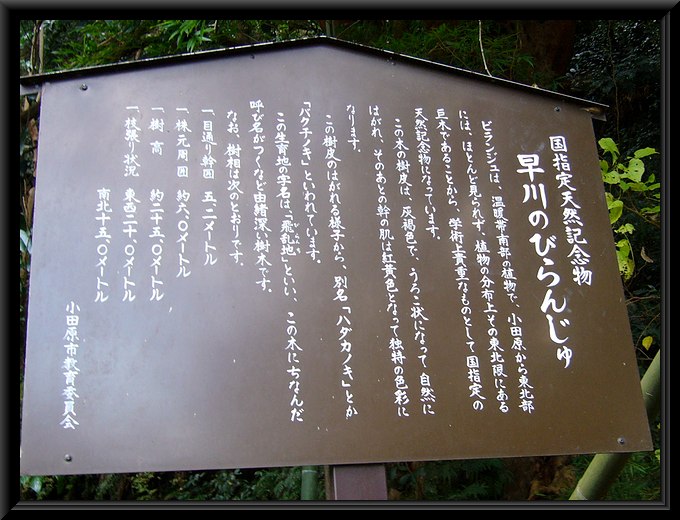 国指定天然記念物
早川のびらんじゅ
ビランジュは、温暖帯南部の植物で、小田原から東北部
には、ほとんど見られず、植物の分布上その東北限にある
巨木であることから、学術上貴重なものとして国指定の
天然記念物になっています。
この木の樹皮は、灰褐色で、うろこ状になって自然に
はがれ、そのあとの幹の肌は紅黄色となって独特の色彩に
なります。
この樹皮のはがれる様子から、別名「ハダカノキ」とか
「バクチノキ」といわれています。
この生育地の字名は、「飛乱地」といい、この木にちなんだ
呼び名がつくなど由緒深い樹木です。
なお、樹相は次のとおりです。
一、目通り幹囲 五.二メートル
一、株元周囲 約六.〇メートル
一、樹高 約二十五.〇メートル
一、枝張り状況 東西二十.〇メートル
南北十五.〇メートル
小田原市教育委員会